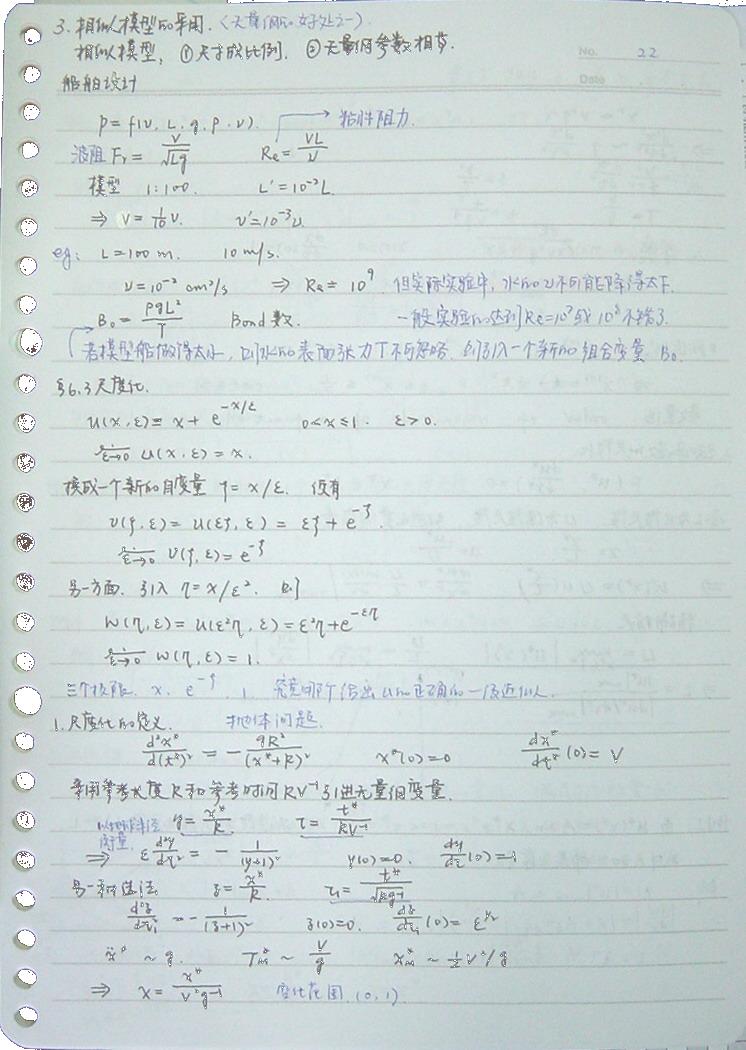 3. 相似模型的采用.〈无量纲的好处之一〉.
相似模型, ①尺寸成比例. ②无量纲参数相等.
No. 22
Date
船舶设计
p = f(v, L, g, ρ, ν). → 粘性阻力.
波阻 Fr = V/√Lg Re = VL/ν
模型 1:100. L' = 10⁻²L.
⇒ V = 1/10 v. ν' = 10⁻³ν.
eg: L = 100 m. 10 m/s.
ν = 10⁻² cm²/s ⇒ Re = 10⁹. 但实际实验中, 水的ν不可能降得太下.
B₀ = ρgL²/T Bond 数. 一般实验的达到Re=10⁷或10⁸不错了.
若模型船做得太小, 则水的表面张力T不可忽略. 则引入一个新的组合变量 B₀.
§6.3 尺度化.
u(x, ε) = x + e^(-x/ε) 0<x≤1. ε>0.
lim ε→0 u(x, ε) = x.
换成一个新的自变量 ζ = x/ε. 便有
v(ζ, ε) = u(εζ, ε) = εζ + e^(-ζ)
lim ε→0 v(ζ, ε) = e^(-ζ)
另一方面. 引入 η = x/ε². 则
w(η, ε) = u(ε²η, ε) = ε²η + e^(-εη)
lim ε→0 w(η, ε) = 1.
三个极限. x, e^(-ζ), 1. 究竟哪个给出u的正确的一级近似.
1. 尺度化的定义. 抛体问题.
d²x*/d(t*)² = - gR²/(x*+R)² x*(0)=0 dx*/dt*(0) = V
采用参考长度 R 和参考时间 RV⁻¹ 引进无量纲变量.
以地球半径 y = x*/R. τ = t*/RV⁻¹
⇒ ε d²y/dτ² = - 1/(y+1)² y(0)=0. dy/dτ(0)=1
另一种选法. z = x*/R. τ₁ = t*/√Rg⁻¹
d²z/dτ₁² = - 1/(z+1)² z(0)=0. dz/dτ₁(0) = ε^(1/2)
ẍ* ~ g. T*ₘ ~ V/g x*ₘ ~ ½V²/g
⇒ x = x*/V²g⁻¹ 变化范围 (0, 1)